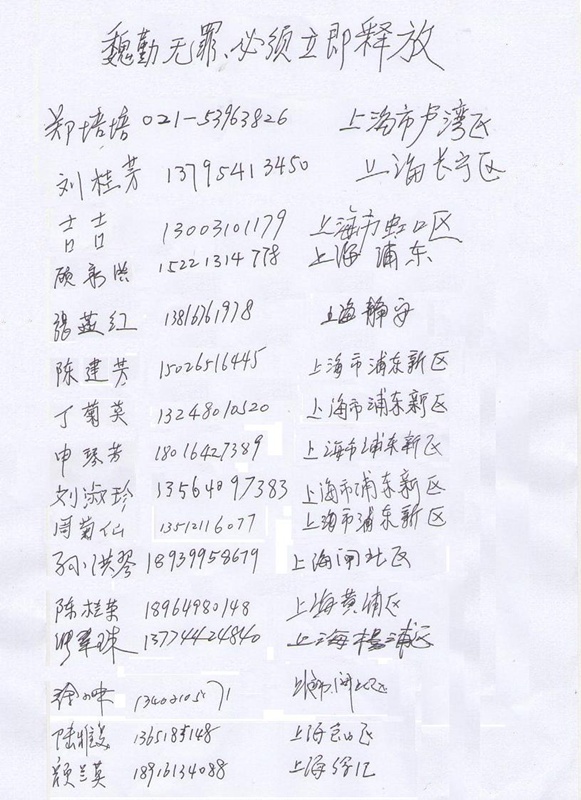 魏勤无罪、必须立即释放
郑培培 021-53963826 上海市卢湾区
刘桂芳 13795413450 上海长宁区
吉吉 13003101179 上海市虹口区
顾 15221314778 上海浦东
張燕红 13816761978 上海静安
陈建芳 15026516445 上海市浦东新区
丁菊英 13248010520 上海市浦东新区
申琴芳 18016427389 上海市浦东新区
刘淑珍 13564097383 上海市浦东新区
周菊仙 13512116077 上海市浦东新区
孙洪琴 18939958679 上海闸北区
陈桂英 18964980148 上海黄浦区
翠珠 13774424840 上海杨浦区
徐
陆雅 上海宝山区
颜兰英 18916134088 上海